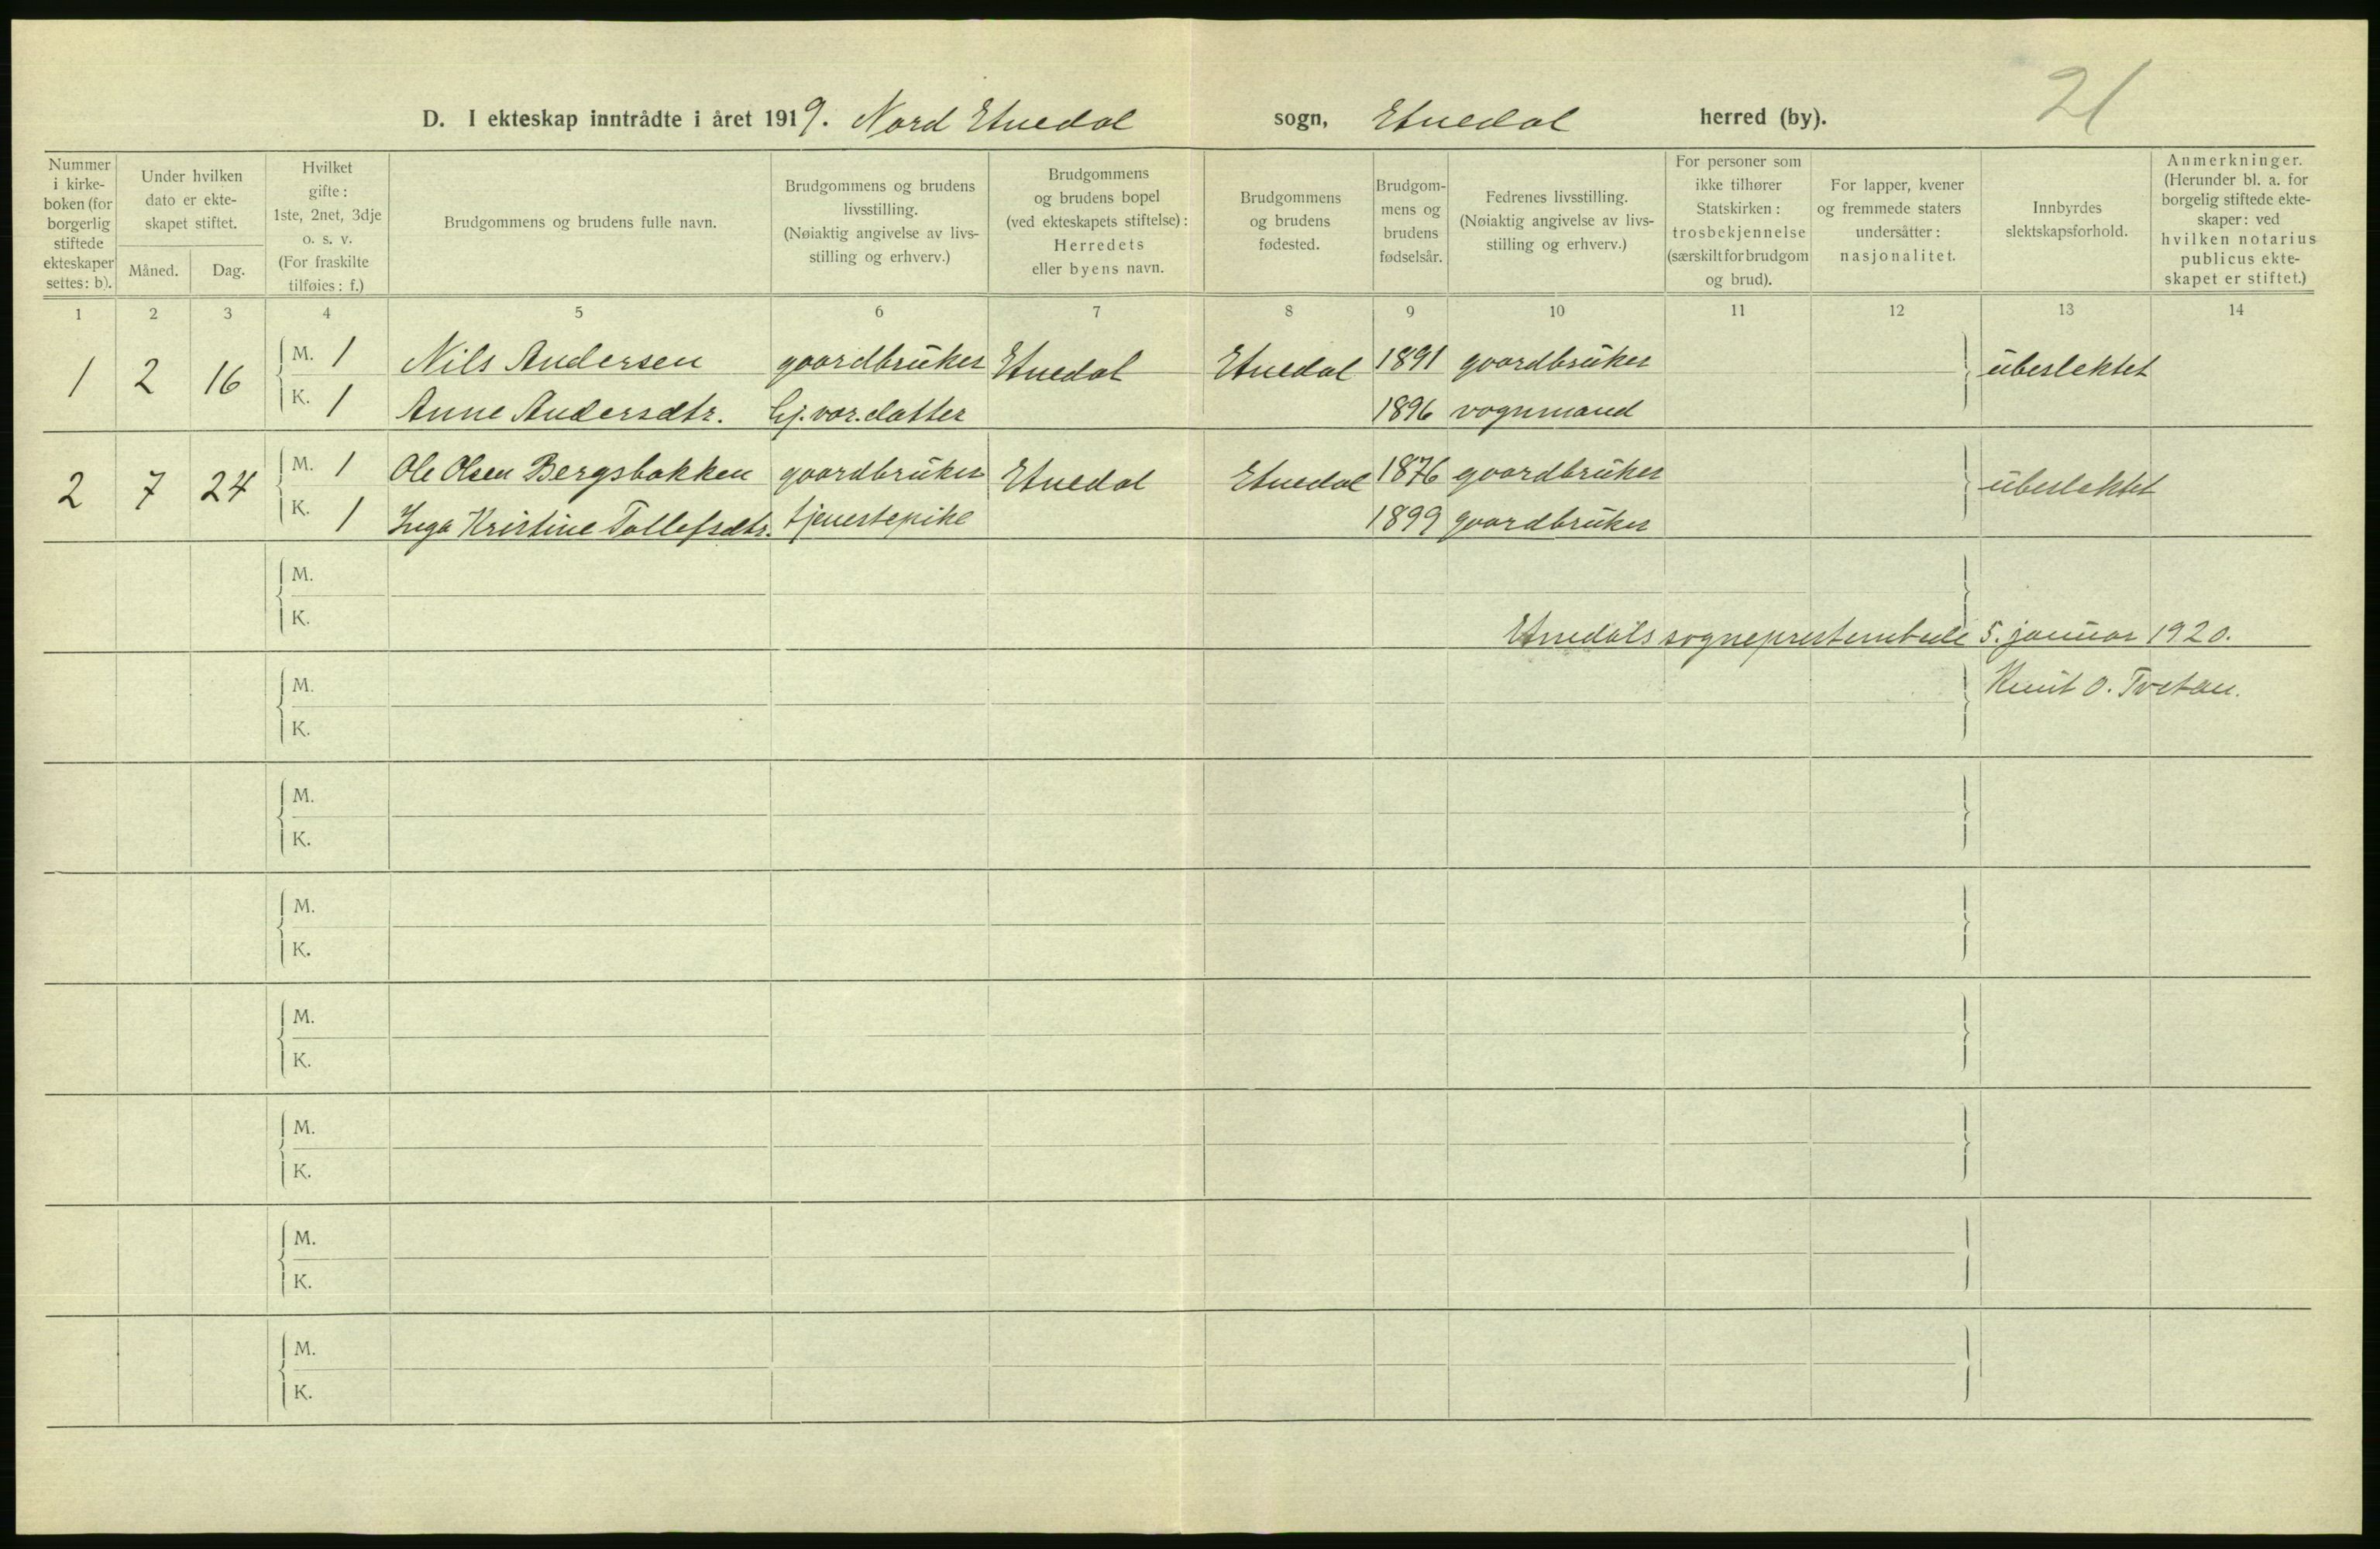 21
D. I ekteskap inntrådte i året 1919. Nord Etnedal sogn, Etnedal herred (by).
Nummer i kirke- boken (for borgerlig stiftede ekteskaper settes: b).
Under hvilken dato er ekte- skapet stiftet.
Måned. Dag.
Hvilket gifte: 1ste, 2net, 3dje o. s. v. (For fraskilte tilføies: f.)
Brudgommens og brudens fulle navn.
Brudgommens og brudens livsstilling. (Nøiaktig angivelse av livs- stilling og erhverv.)
Brudgommens og brudens bopel (ved ekteskapets stiftelse): Herredets eller byens navn.
Brudgommens og brudens fødested.
Brudgom- mens og brudens fødselsår.
Fedrenes livsstilling. (Nøiaktig angivelse av livs- stilling og erhverv.)
For personer som ikke tilhører Statskirken: trosbekjennelse (særskilt for brudgom og brud).
For lapper, kvener og fremmede staters undersåtter: nasjonalitet.
Innbyrdes slektskapsforhold.
Anmerkninger. (Herunder bl. a. for borgelig stiftede ekte- skaper: ved hvilken notarius publicus ekte- skapet er stiftet.)
1 2 3 4 5 6 7 8 9 10 11 12 13 14
1 2 16 M. 1 Nils Andersen gaardbruker Etnedal Etnedal 1891 gaardbruker ubeslektet
K. 1 Anne Andersdtr. hj.vær.datter 1896 vognmand
2 7 24 M. 1 Ole Olsen Bergsbakken gaardbruker Etnedal Etnedal 1876 gaardbruker ubeslektet
K. 1 Inga Kristine Tollefsdtr. tjenestepike 1899 gaardbruker
M.
K.
Etnedals sogneprestembede 5. januar 1920.
M. Knut O. Tvetan.
K.
M.
K.
M.
K.
M.
K.
M.
K.
M.
K.
M.
K.